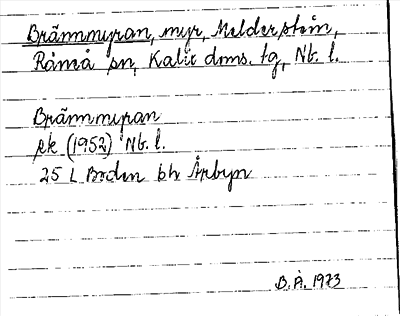 Brännmyran, myr, Melderstein,
Råneå sn, Kalix doms. tg, Nb. l.
Brännmyran
ek (1952) Nb. l.
25 L Boden bl. Årbyn
B. Å. 1973